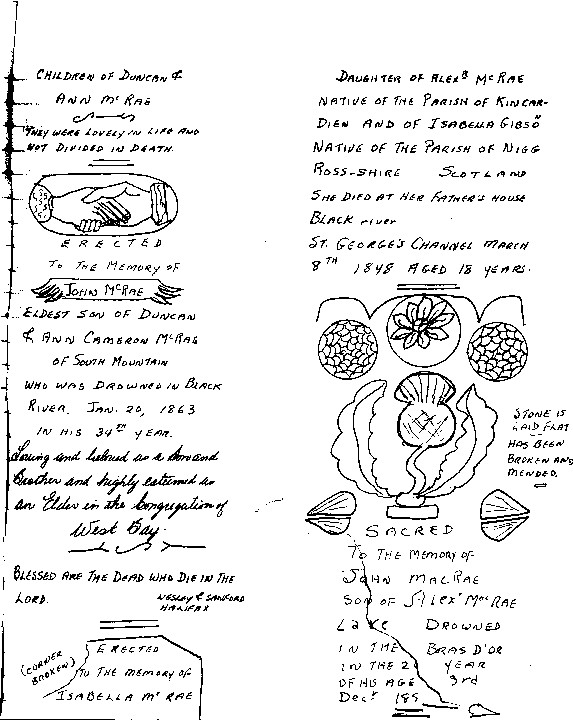 CHILDREN OF DUNCAN &
ANN McRAE
THEY WERE LOVELY IN LIFE AND
NOT DIVIDED IN DEATH.
ERECTED
TO THE MEMORY OF
JOHN McRAE
ELDEST SON OF DUNCAN
& ANN CAMERON McRAE
OF SOUTH MOUNTAIN
WHO WAS DROWNED IN BLACK
RIVER, JAN. 20, 1863
IN HIS 34TH YEAR.
Loving and beloved as a Son and
Brother and highly esteemed as
an Elder in the Congregation of
West Bay.
BLESSED ARE THE DEAD WHO DIE IN THE
LORD.
WESLEY & SANFORD
HALIFAX
(CORNER
BROKEN)
ERECTED
TO THE MEMORY OF
ISABELLA Mc RAE
DAUGHTER OF ALEXR McRAE
NATIVE OF THE PARISH OF KINCAR-
DIEN AND OF ISABELLA GIBSO
NATIVE OF THE PARISH OF NIGG
ROSS-SHIRE SCOTLAND
SHE DIED AT HER FATHER'S HOUSE
BLACK river
ST. GEORGE'S CHANNEL MARCH
8TH 1848 AGED 18 YEARS.
STONE IS
LAID FLAT
HAS BEEN
BROKEN AND
MENDED.
SACRED
TO THE MEMORY OF
JOHN MACRAE
SON OF Alexr MacRAE
DROWNED
IN THE BRAS D'OR
Lake
IN THE 23rd YEAR
OF HIS AGE
Decr 185